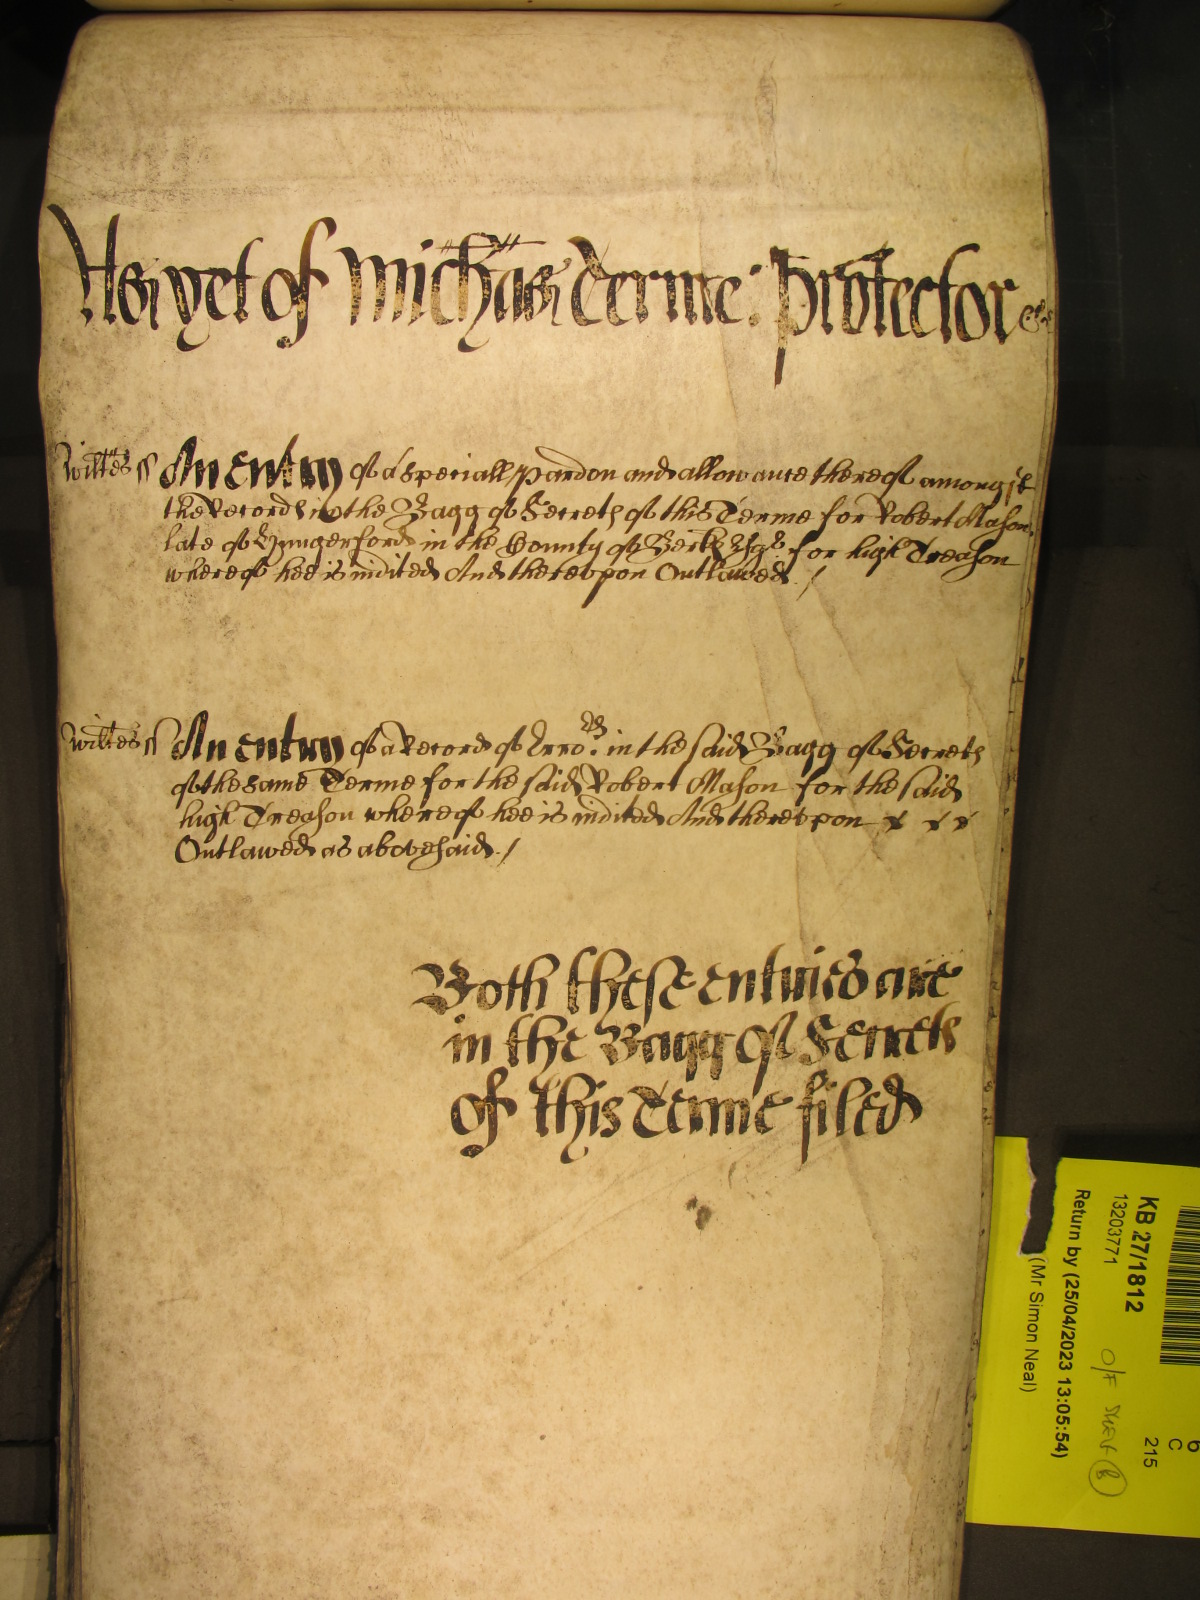 As yet of Michas Terme: Protector &c
Wiltes ss An entry of a speciall Pardon and allowance thereof amongst
the Records in the Bagg of Secrets of this Terme for Robert Mason
late of Hungerford in the County of Berks for high Treason
whereof hee is indited And therevpon Outlawed ./
Wiltes ss An entry of a Record of Erro.r in the said Bagg of Secrets
of the same Terme for the said Robert Mason for the said
high Treason whereof hee is indited And therevpon x x x
Outlawed as abovesaid ./
Both these entries are
in the Bagg of Secrets
of this Terme filed
KB 27/1812
13203771
Return by (25/04/2023 13:05:54)
(Mr Simon Neal)
O/F
6
C
215